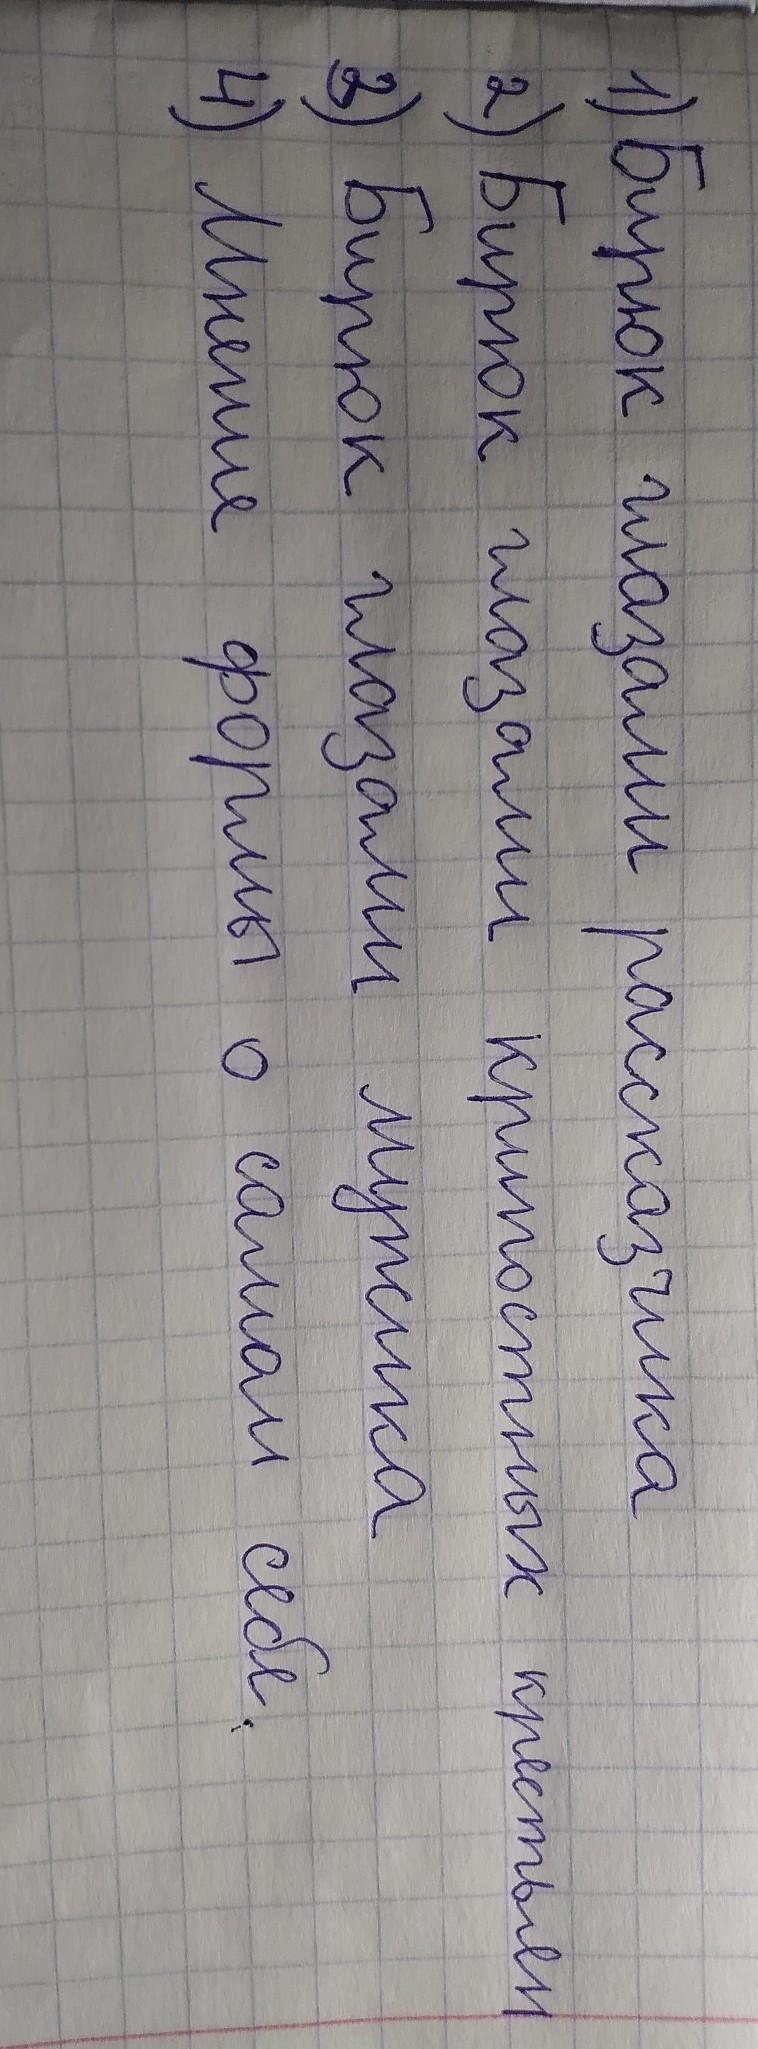 1) Бирюк глазами рассказчика
2) Бирюк глазами крипостных крестьян
3) Бирюк глазами мужика
4) Мнение формы о самом себе.